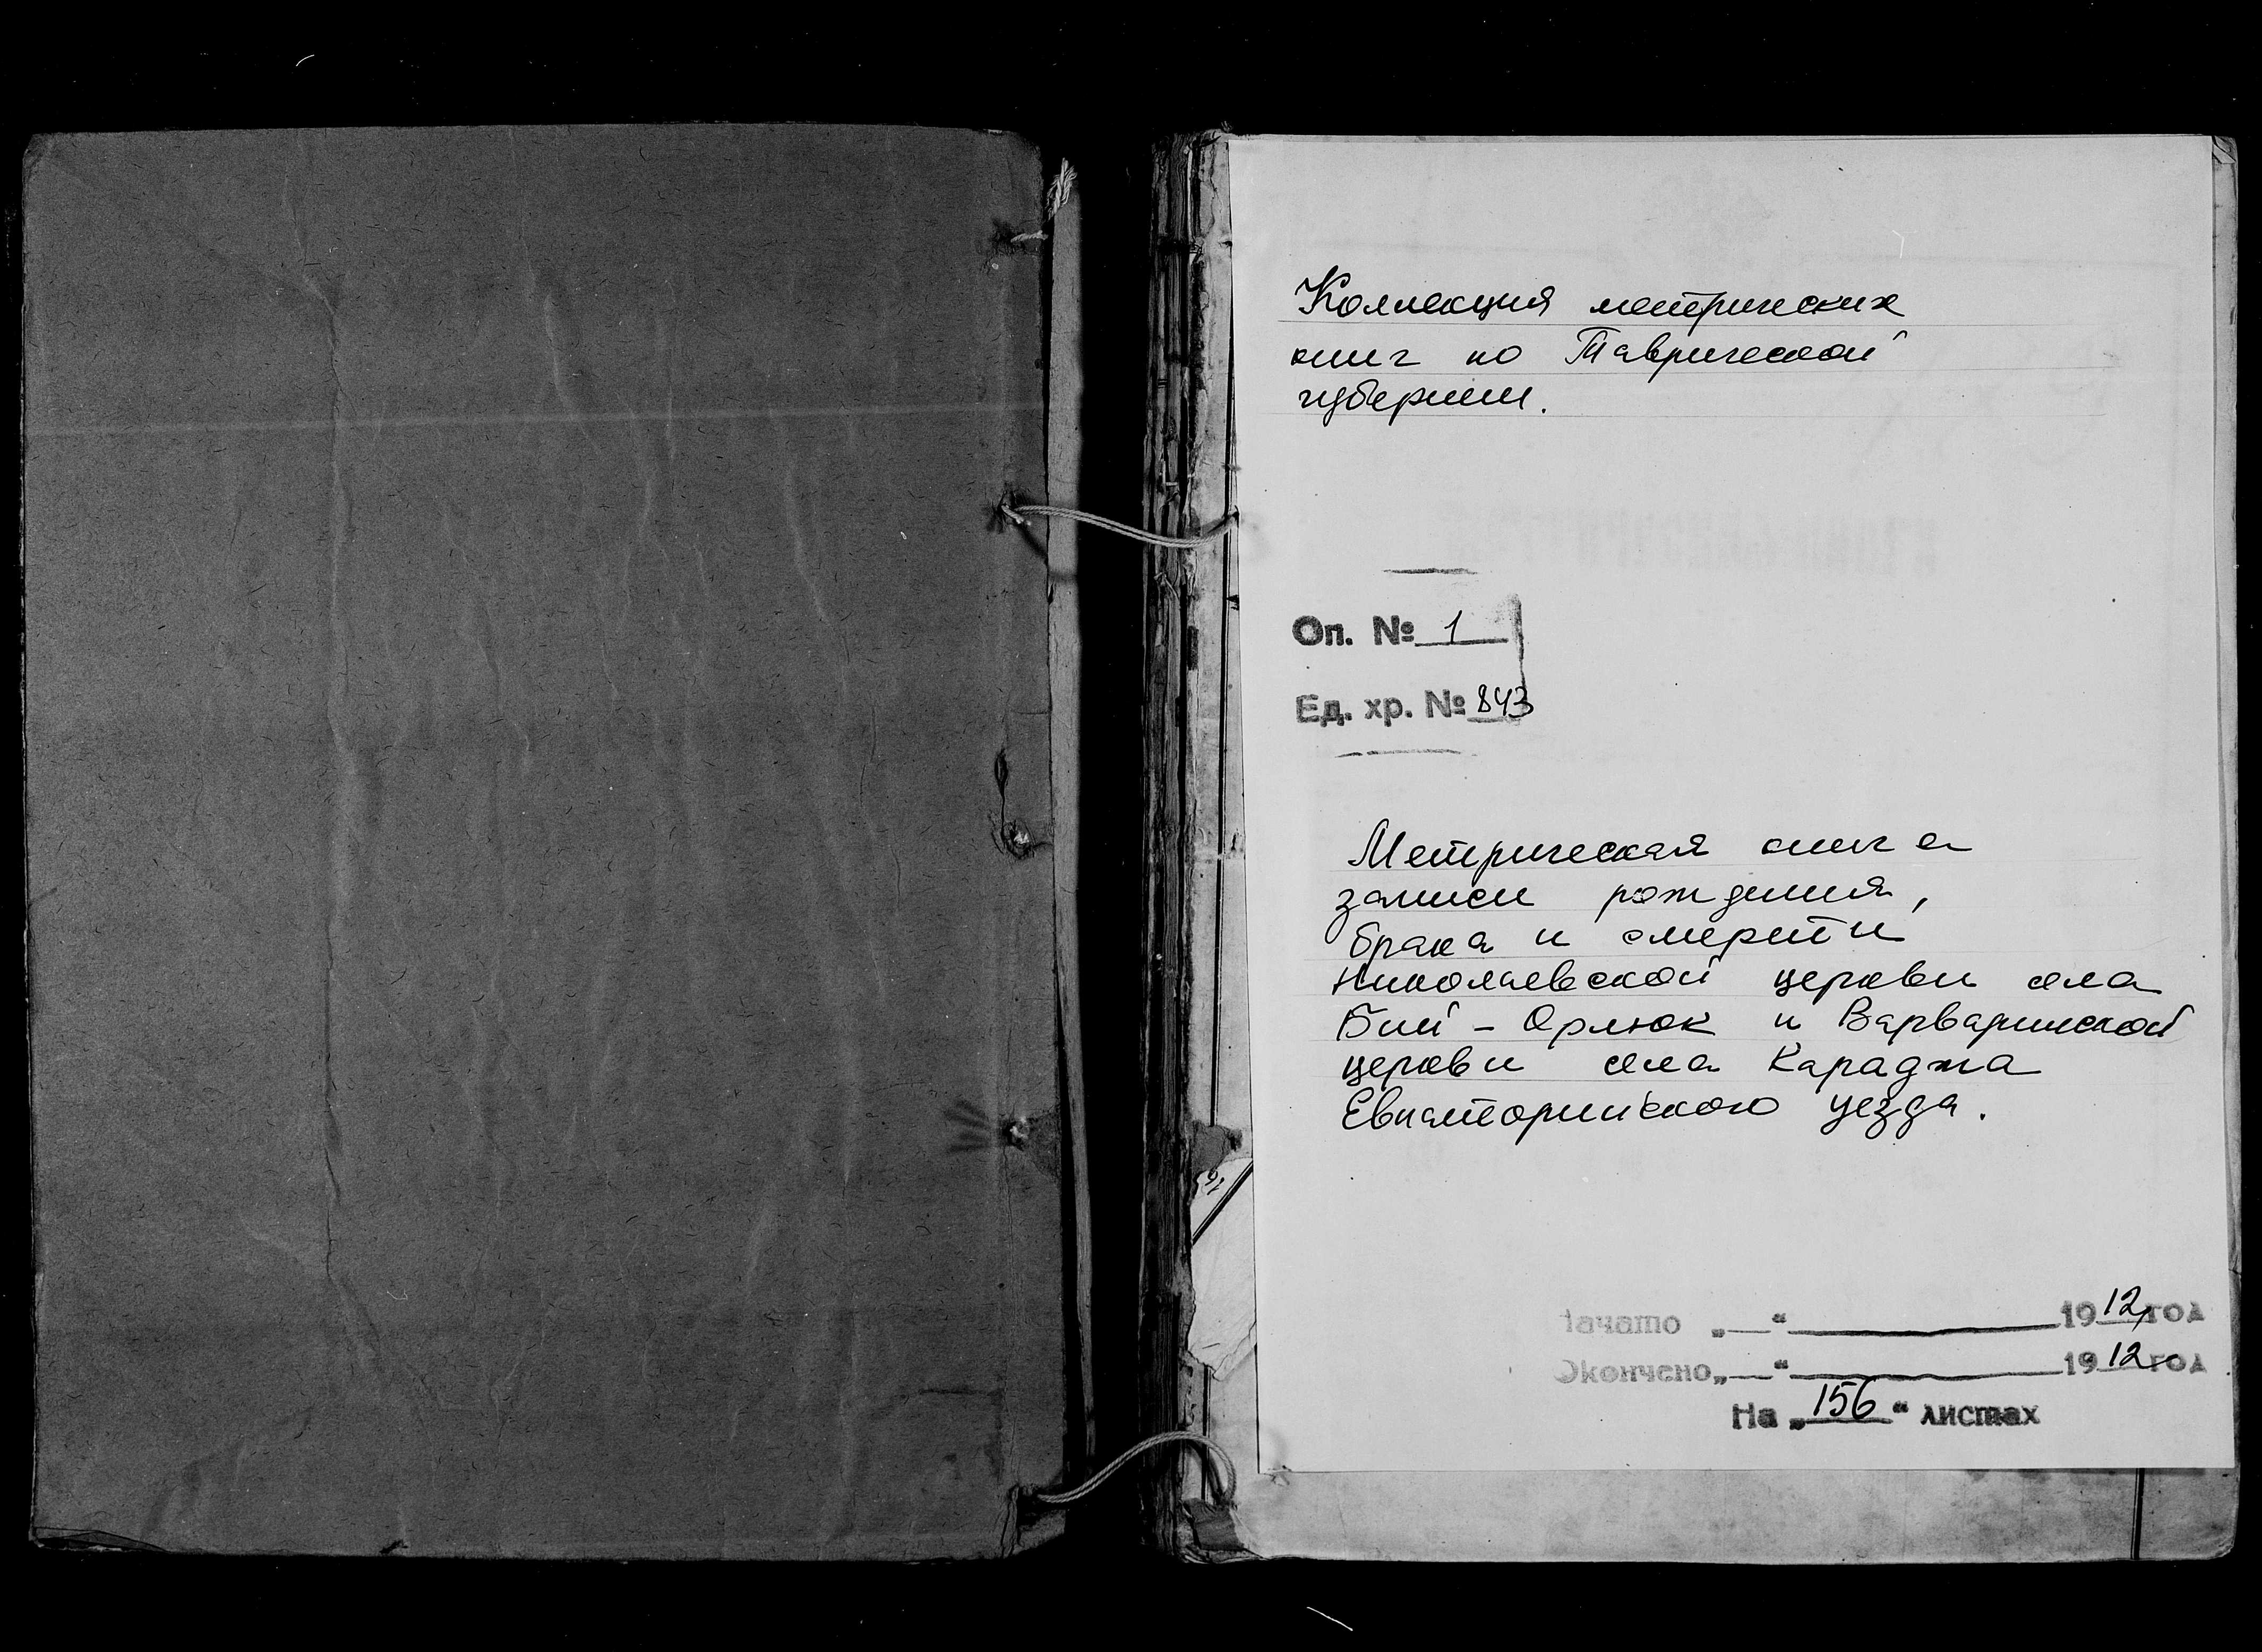 Коллекция метрических
книг по Таврической
губернии.
Оп. № 1
Ед. хр. № 843
Метрическая книга
записи рождения,
брака и смерти
Николаевской церкви села
Бий - Орлюк и Варваринской
церкви села Караджа
Евпаторийского уезда.
Начато „__“ 1912 год
Окончено „__“ 1912 год
На „156“ листах